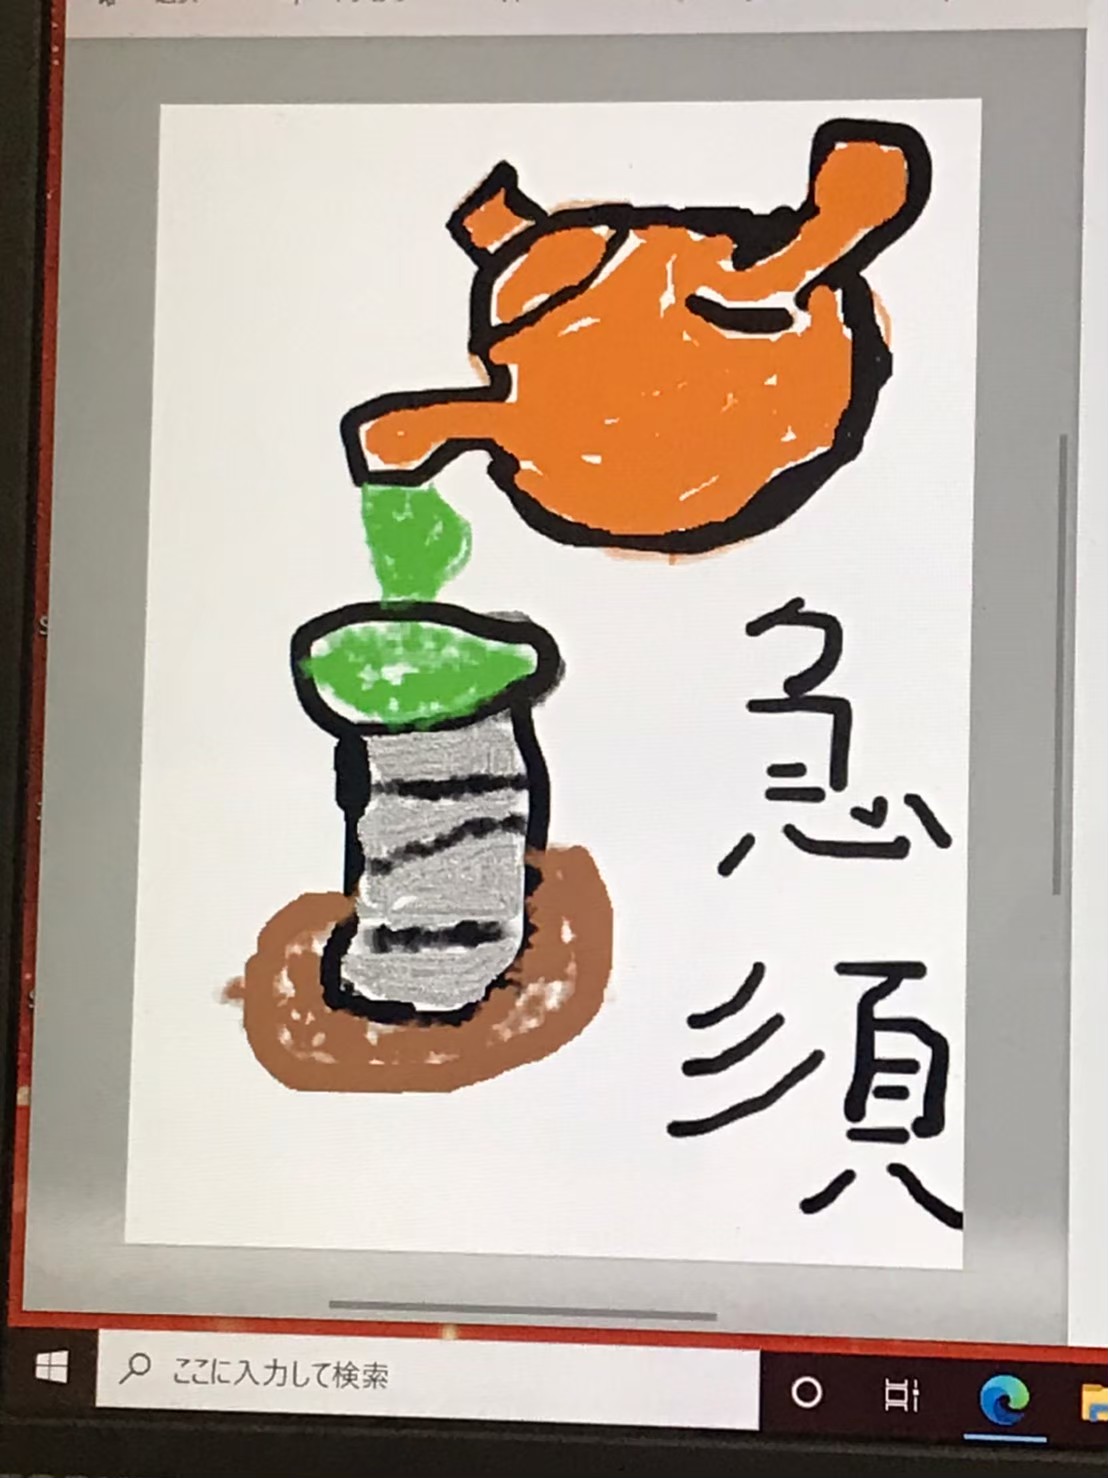 急須
ここに入力して検索